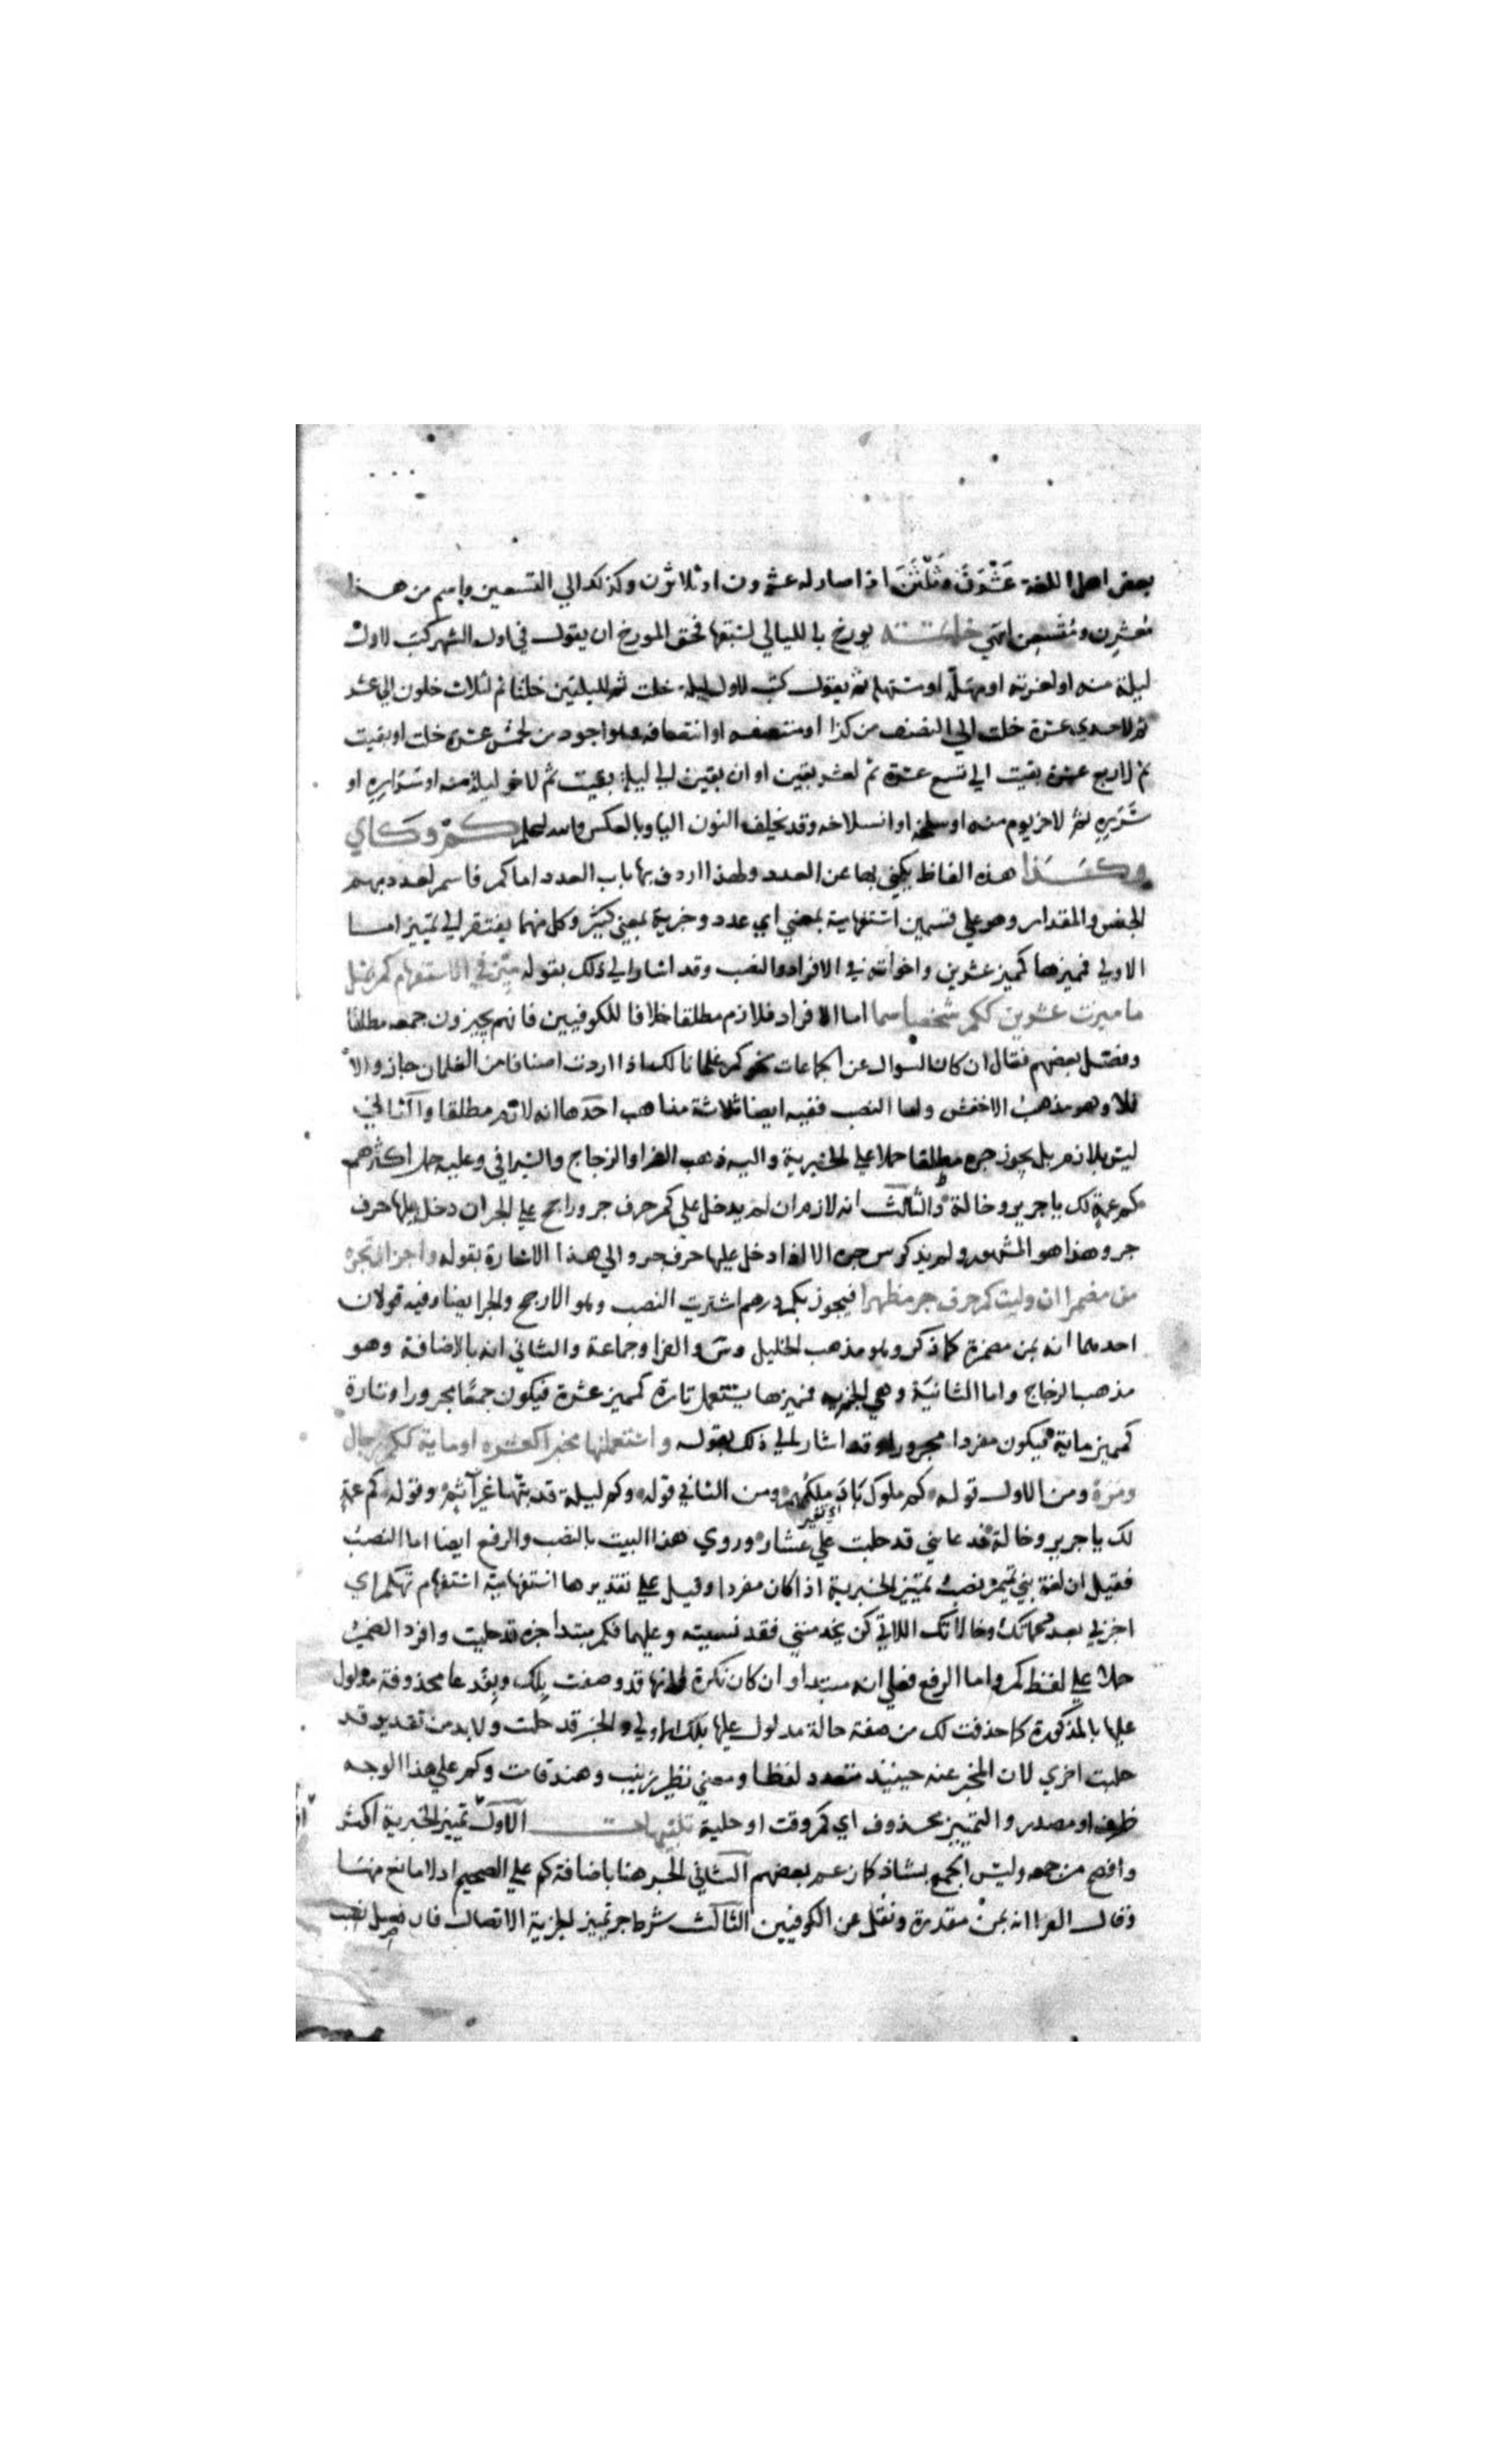 بعض اهل اللغة عَشْرَنَ وثَلْثَنَ اذا صار له عشرون او ثلاثون وكذلك الي التسعين واسم من هذا
معشرن ومتسعن انتهي خاتمة يورخ بالليالي لسبقها فحق المورخ ان يقول في اول الشهر كتب لاول
ليلة منه او لغرته او مهلّه او مستهله ثم يقول كتب لاول ليلة خلت ثم لليلتين خلتا ثم لثلاث خلون الي عشر
ثم لاحدي عشرة خلت الي النصف من كذا او منتصفه او انتصافه وهو اجود من لخمس عشرة خلت او بقيت
ثم لاربع عشرة بقيت الي تسع عشرة ثم لعشر بقين او ان بقين الي ليلة بقيت ثم لاخر ليلة منه او سَرَاره او
سَرَرِهِ ثم لاخر يوم منه او سلخه او انسلاخه وقد تخلف النون اليا وبالعكس والله اعلم كم وكاي
وكذا هذه الفاظ يكني بها عن العدد ولهذا اردف بها باب العدد اما كم فاسم لعدد مبهم
الجنس والمقدار وهو علي قسمين استفهامية بمعني اي عدد وخبرية بمعني كثير وكل منهما يفتقر الي تمييز اما
الاولي فمميزها كمميز عشرين واخواته في الافراد والنصب وقد اشار الي ذلك بقوله ميّز في الاستفهام كم بمثل
ما ميزت عشرين ككم شخصا سما اما الافراد فلازم مطلقا خلافا للكوفيين فانهم يجيزون جمعه مطلقا
وفصّل بعضهم فقال ان كان السوال عن الجماعات نحو كم غلمانا لك اذا اردت اصنافا من الغلمان جاز والا
فلا وهو مذهب الاخفش واما النصب ففيه ايضا ثلاثة مذاهب احدها انه لازم مطلقا والثاني
ليس بلازم بل يجوز جره مطلقا حملا علي الخبرية واليه ذهب الفرا والزجاج والسيرافي وعليه حمل اكثرهم
كم عمة لك يا جرير وخالة والثالث انه لازم ان لم يدخل علي كم حرف جر وراجح علي الجر ان دخل عليها حرف
جر وهذا هو المشهور ولم يذكر س جره الا اذا دخل عليها حرف جر والي هذا الاشارة بقوله واجز ان تجره
من مضمرا ان وليت كم حرف جر مظهرا فيجوز بكم درهم اشتريت النصب وهو الارجح والجر ايضا وفيه قولان
احدهما انه بمن مضمرة كما ذكر وهو مذهب الخليل وس والفرا وجماعة والثاني انه بالاضافة وهو
مذهب الزجاج واما الثانية وهي الخبرية فمميزها يستعمل تارة كمميز عشرة فيكون جمعًا مجرورا وتارة
كمميز ماية فيكون مفردا مجرورا وقد اشار الي ذلك بقوله واستعملنها مخبرا كعشره او ماية ككم رجال
ومره ومن الاول قوله كم ملوك بَادَ ملكهم ومن الثاني قوله وكم ليلة قد بتها غير آثم وقوله كم عمة
لك يا جرير وخالة فدعا بني قد حلبت علي عشار وروي هذا البيت بالنصب والرفع ايضا اما النصب
فقيل ان لغة بني تميم نصب تمييز الخبرية اذا كان مفردا وقيل علي تقديرها استفهامية استفهام تهكم اي
اخبرني بعدد عماتك وخالاتك اللاتي كن يخدمنني فقد نسيته وعليهما فكم مبتدا خبره قد حلبت وافرد الضمير
حملا علي لفظ كم واما الرفع فعلي انه مبتدا وان كان نكرة لانها قد وصفت بلك وبفدعا محذوفة مدلول
عليها بالمذكورة كما حذفت لك من صفة خالة مدلول عليها بلك الاولي والخبر قد حلبت ولا بد من تقدير قد
حلبت اخري لان المخبر عنه حينيذ متعدد لفظا ومعني نظير زينب وهند قامت وكم علي هذا الوجه
ظرف او مصدر والتمييز محذوف اي كم وقت او حلبة تنبيهات الاول تمييز الخبرية اكثر
وافصح من جمعه وليس الجمع بشاذ كما زعم بعضهم الثاني الجر هنا باضافة كم علي الصحيح اذ لا مانع منها
وقال الفرا انه بمن مقدرة ونقل عن الكوفيين الثالث شرط جر تمييز الخبرية الاتصال فان فصل نصب